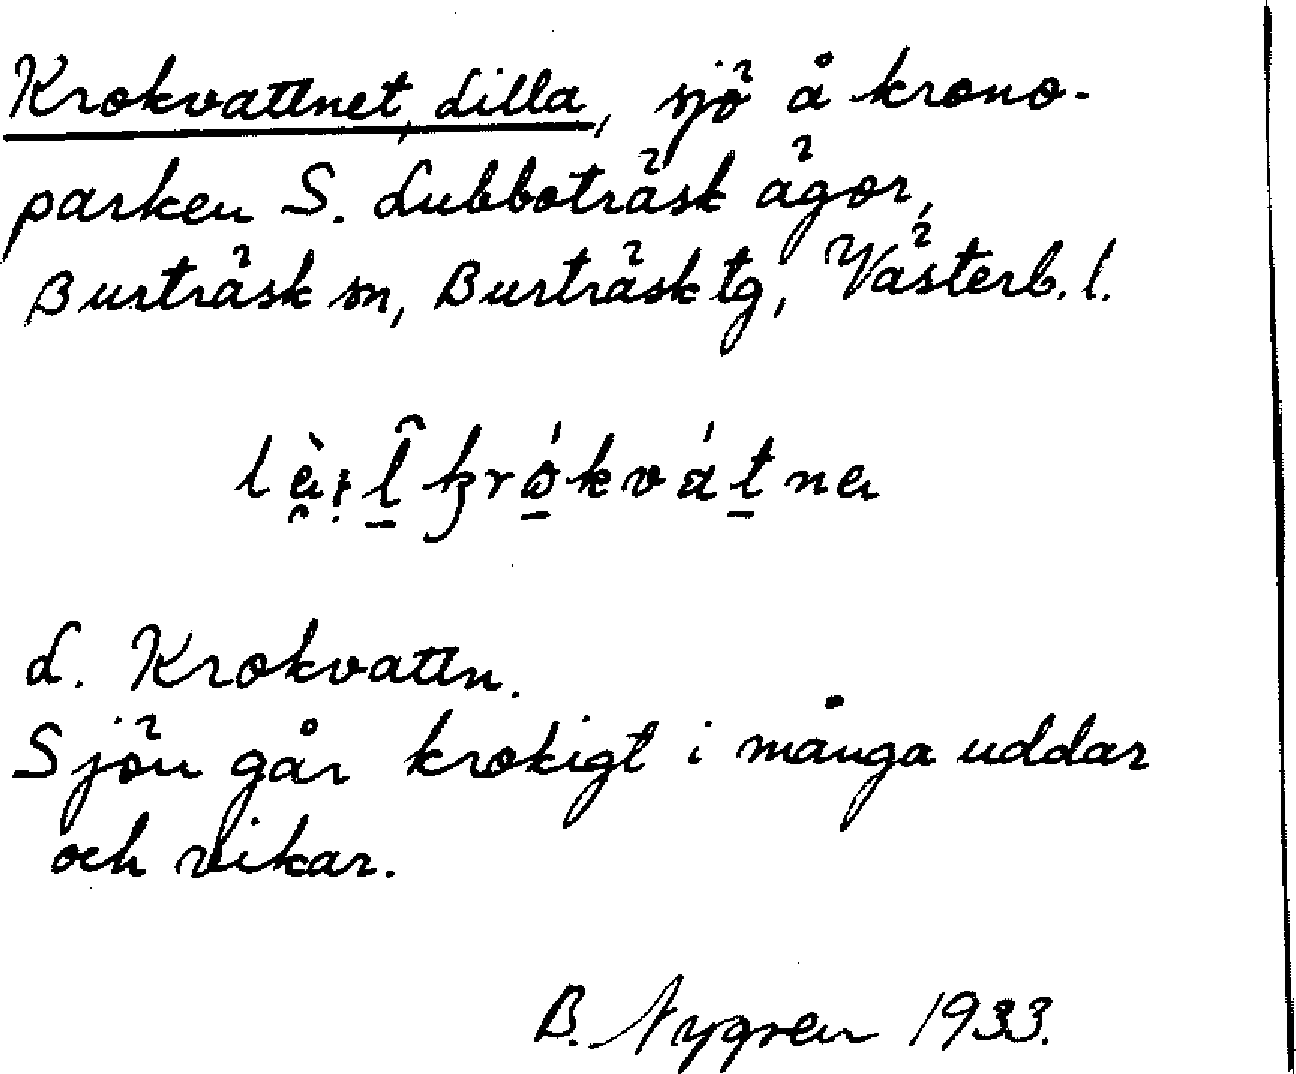 Krokvattnet, Lilla, sjö å krono-
parken S. Lubboträsk ägor,
Burträsk sn, Burträsk tg, Västerb. l.
L. Krokvattn.
Sjön går krokigt i många uddar
och vikar.
B. Nygren 1933.